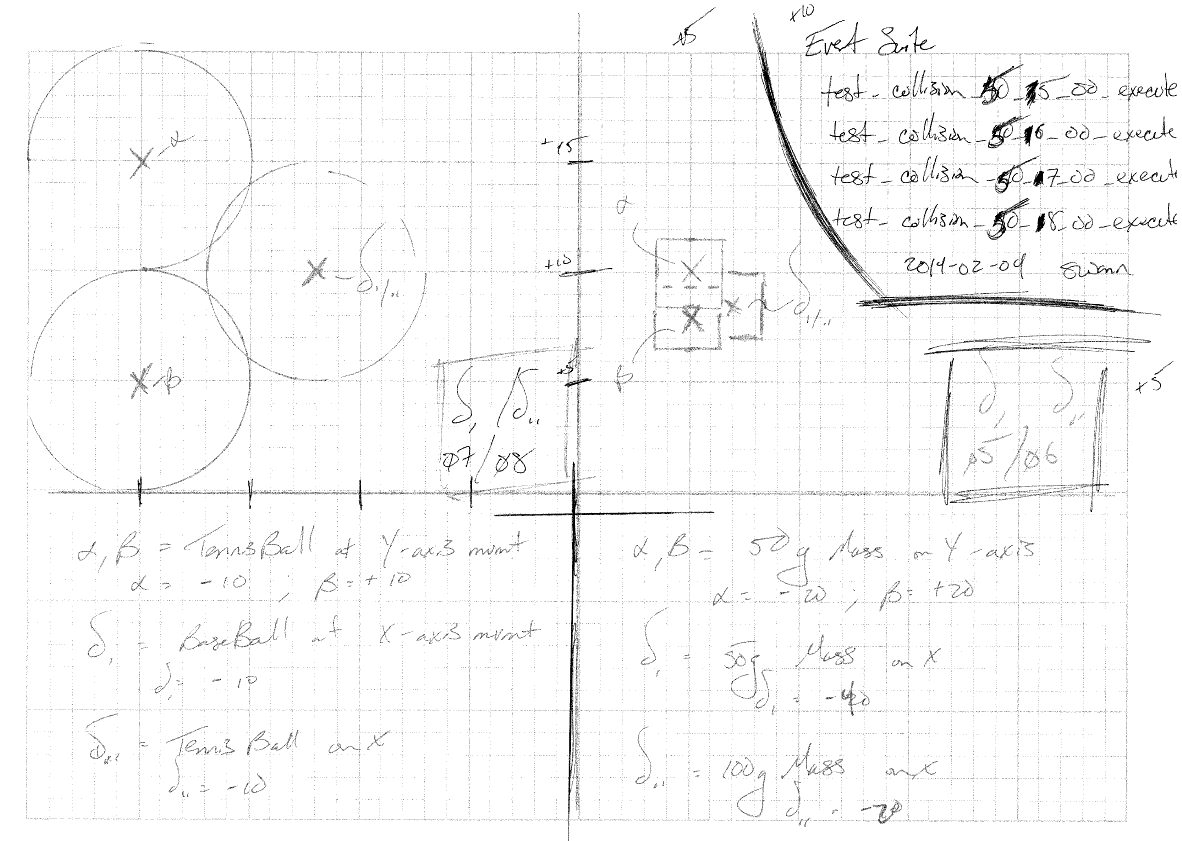 +5
+10
Event Suite
test_collision_50_15_00_execute
test_collision_50_16_00_execute
test_collision_50_17_00_execute
test_collision_50_18_00_execute
2014-02-09 swann
α
+15
α
+10
δ,/,,
δ,/,,
β
+5
β
δ, /δ,,
07/08
δ, δ,,
05/06
+5
α, β = TennisBall at Y-axis mvmt
α = -10 ; β = +10
δ, = BaseBall at X-axis mvmt
δ, = -10
δ,, = Tennis Ball on X
δ,, = -10
α, β = 50g Mass on Y-axis
α = -20 ; β = +20
δ, = 50g Mass on X
δ, = -20
δ,, = 100g Mass on X
δ,, = -20